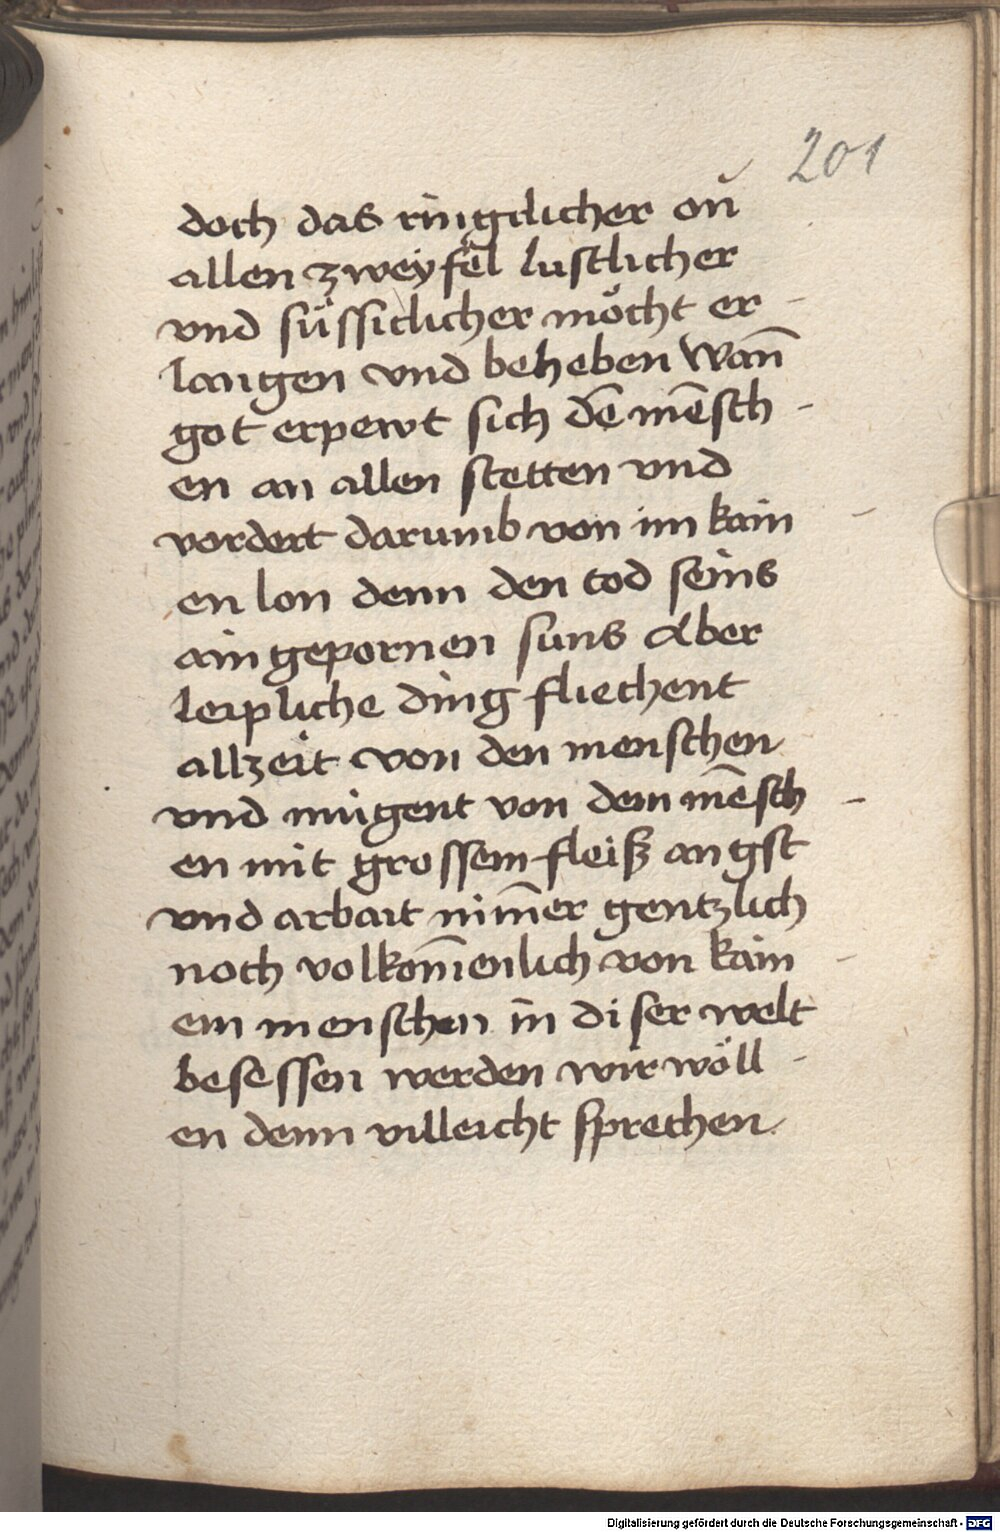 201
doch das ringclicher on̄
allen zweyfel lustlicher
vnd süssiclicher möcht er-
langen vnd beheben wan̄
got erpewt sich dē mēsch-
en an allen stetten vnd
vordert darumb von im kain-
en lon denn den tod seins
ain gepornen suns Aber
leipliche ding fliechent
allzeit von den menschen
vnd mügent von dem mēsch-
en mit grossem fleiß angst
vnd arbait nim̄er gentzlich
noch volkom̄enlich von kain-
em menschen in diser welt
besessen werden wir wöll-
en denn villeicht sprechen
Digitalisierung gefördert durch die Deutsche Forschungsgemeinschaft - DFG